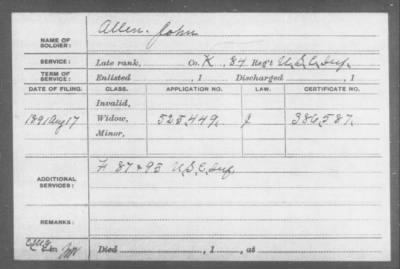 Allen, John
NAME OF SOLDIER:
SERVICE: Late rank, Co. K, 84 Reg't U.S.C. Inf.
TERM OF SERVICE: Enlisted , 1 Discharged , 1
DATE OF FILING. CLASS. APPLICATION NO. LAW. CERTIFICATE NO.
Invalid,
1891 Aug 17 Widow, 525,449, 386,587.
Minor,
F 87 & 95 U.S.C. Inf.
ADDITIONAL SERVICES:
REMARKS:
Died , 1 , at